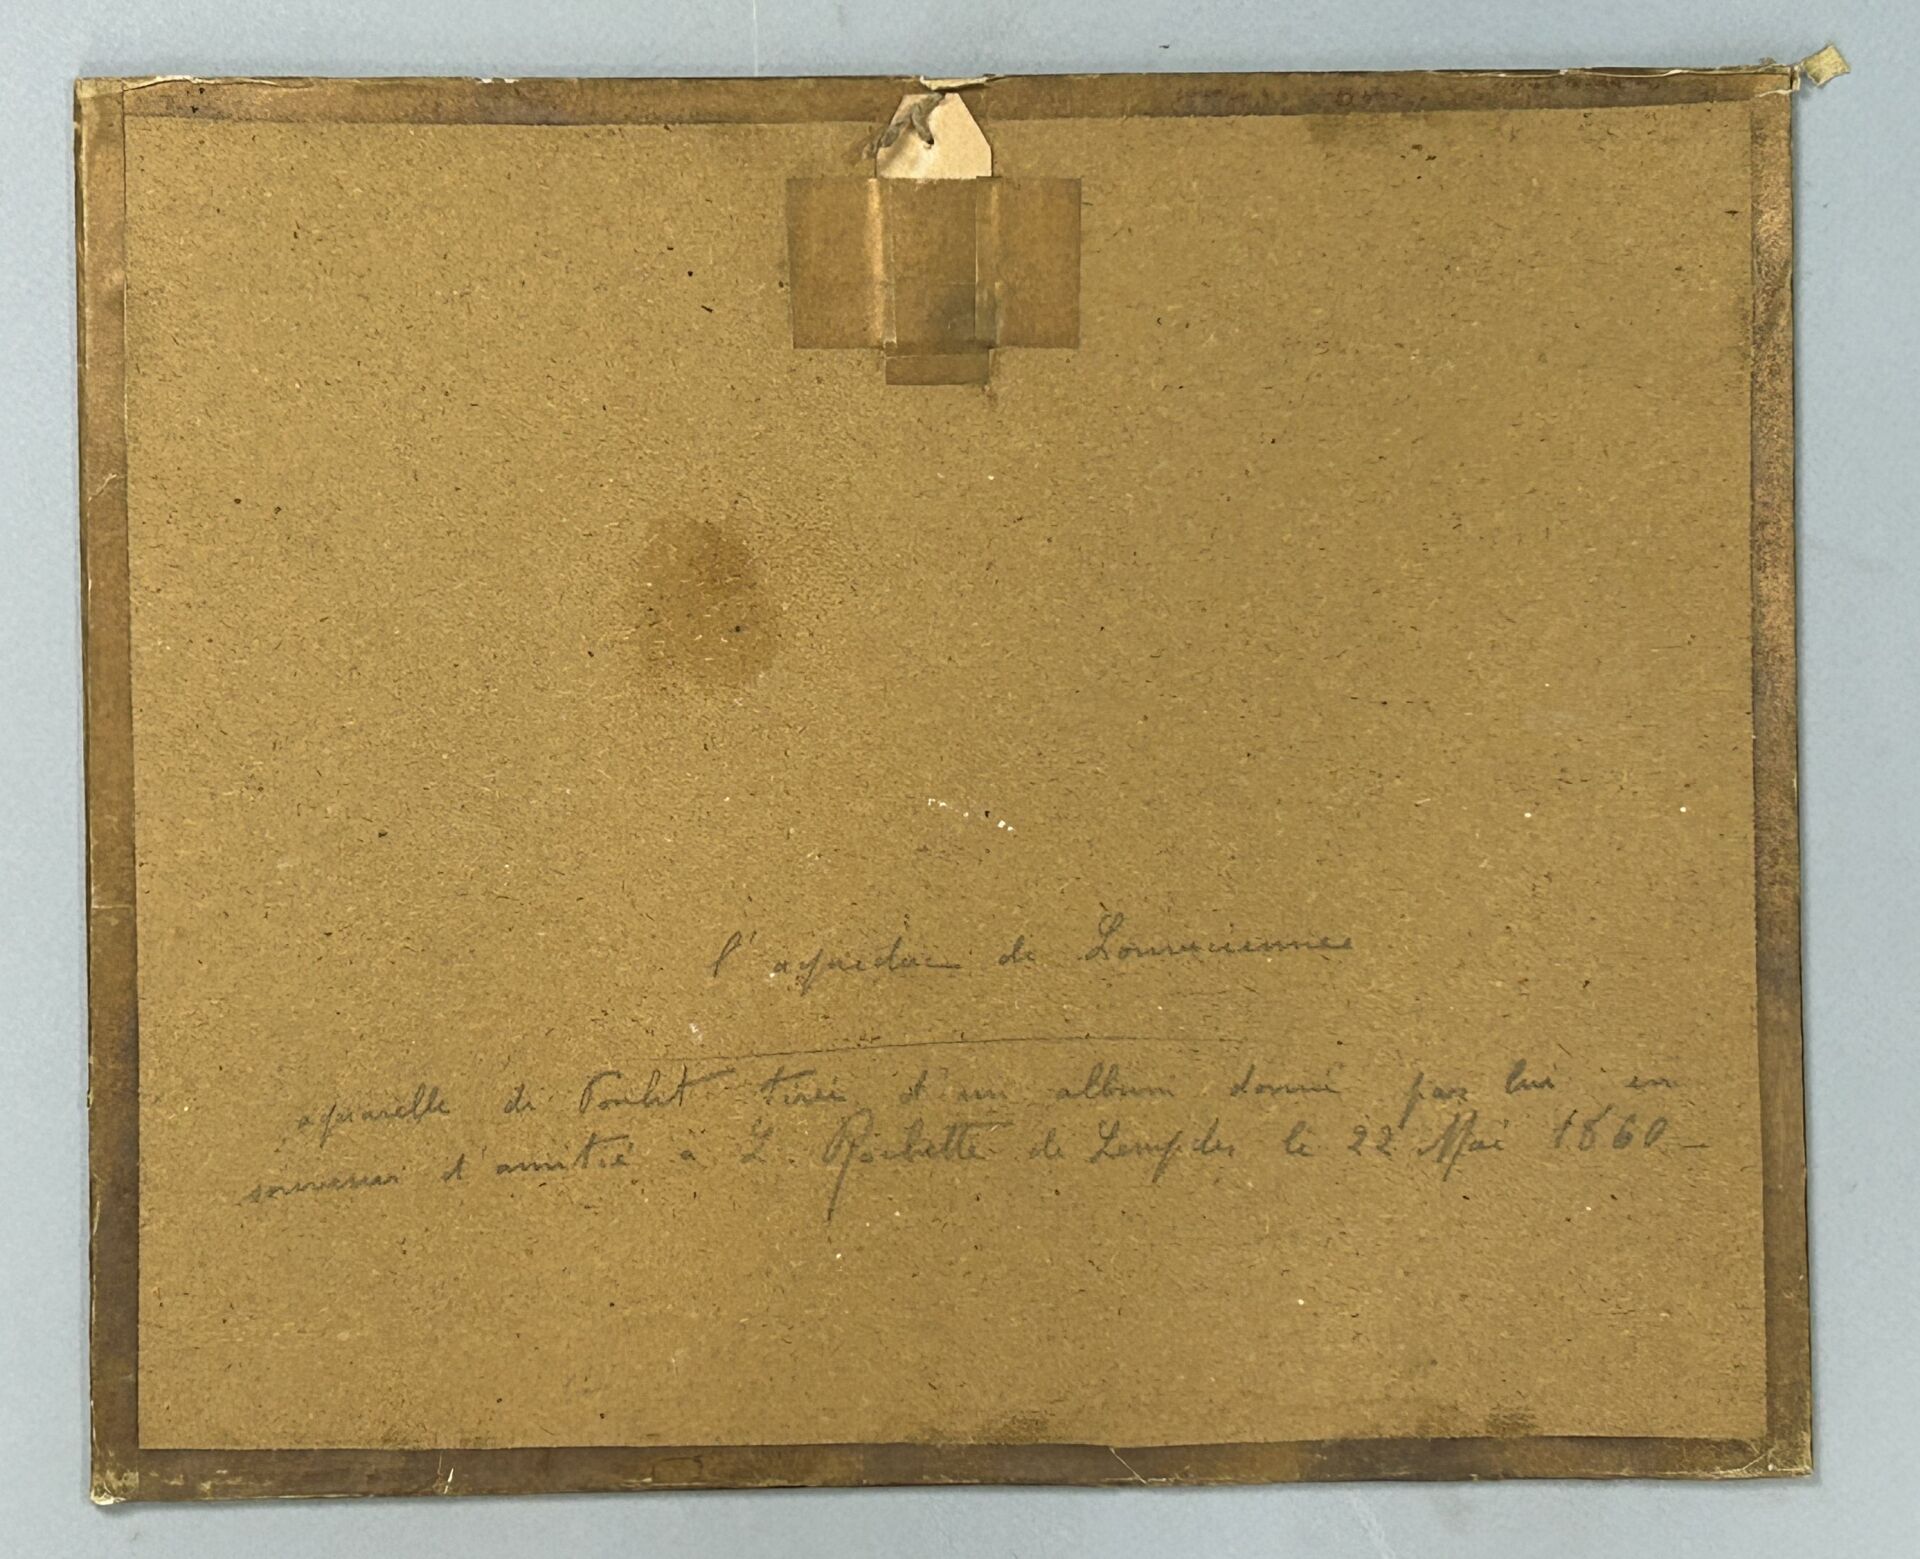 l'aqueduc de Louveciennes
aquarelle de tirée d'un album donné par lui en
souvenir d'amitié à L. Rochette de Lempdes le 22 Mai 1860 -